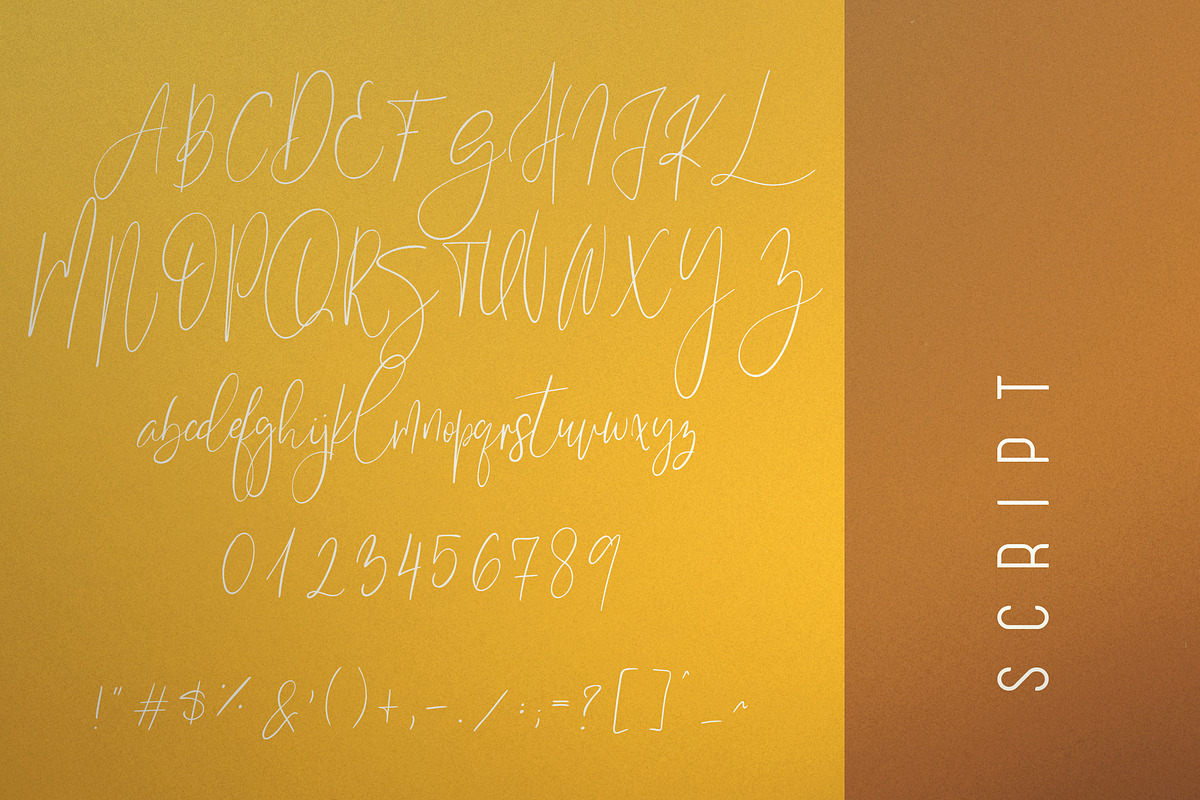 ABCDEFGHIJKL
MNOPQRSTUVWXYZ
abcdefghijklmnopqrstuvwxyz
0123456789
!"#$%&'()+,-./:;=?[]^_~
SCRIPT